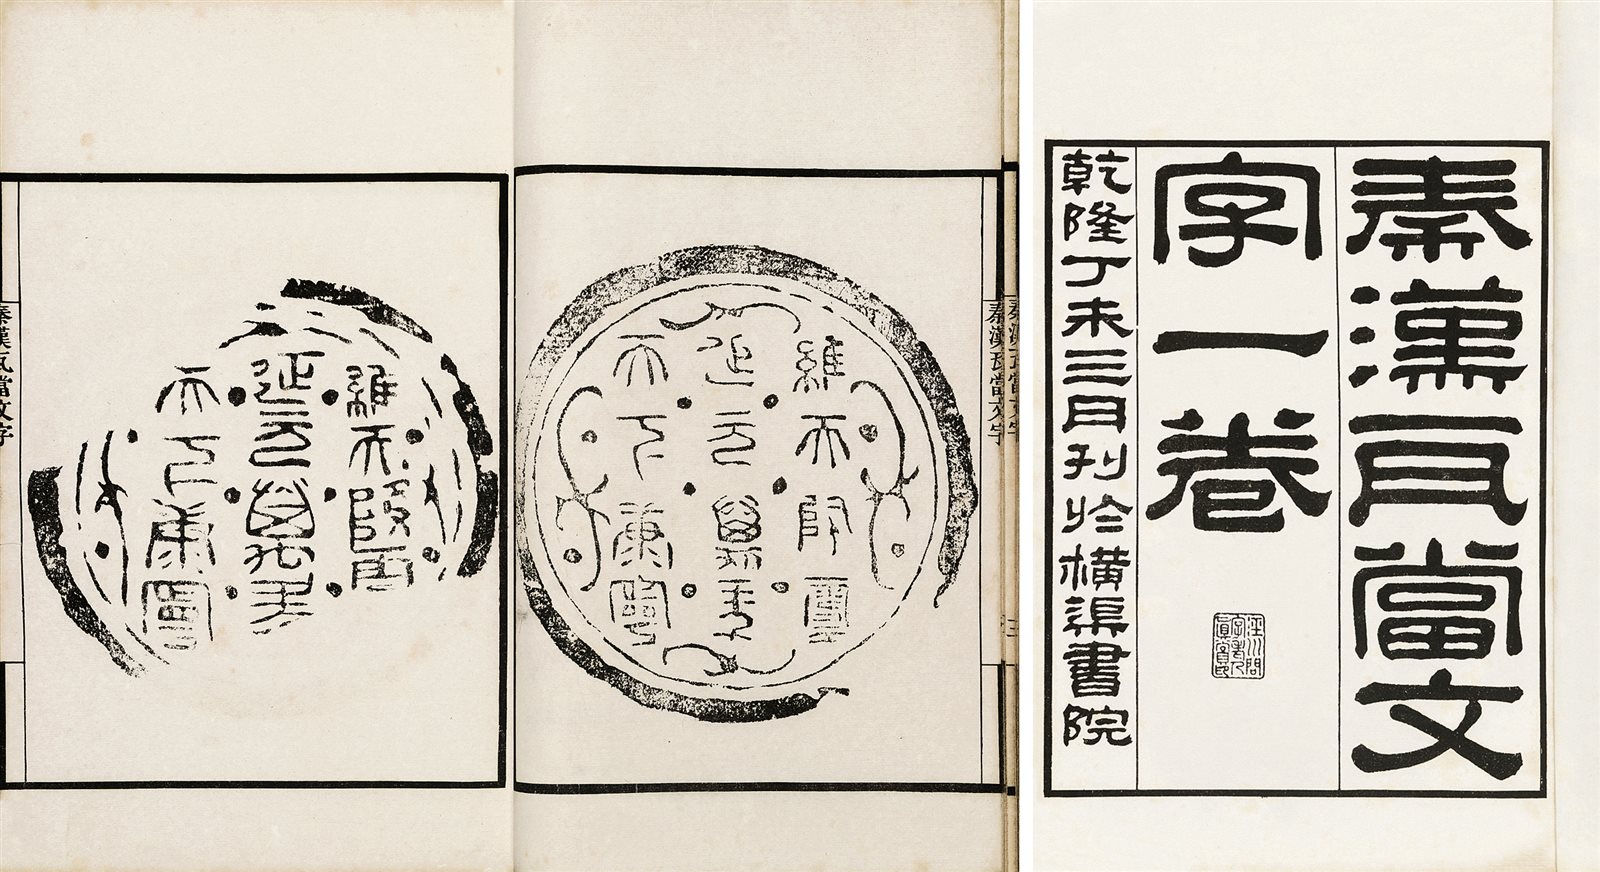 秦漢瓦當文
字一卷
乾隆丁未三日刊於橫渠書院
秦漢瓦當文字
維天降靈
延元萬年
天下康寧
維天降靈
延元萬年
天下康寧
秦漢瓦當文字